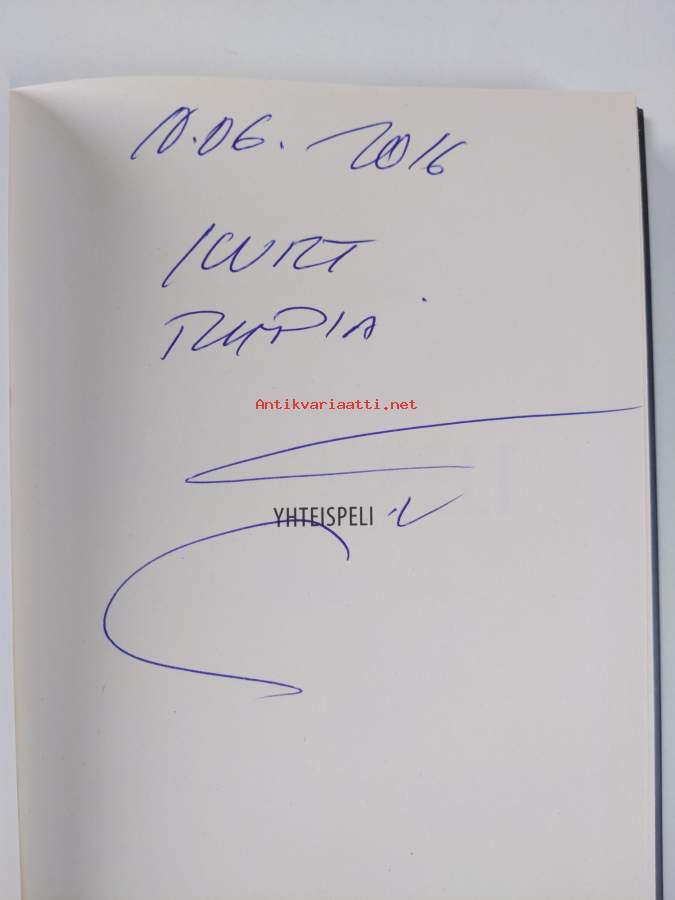 10.06. 2016
KURT
Antikvariaatti.net
YHTEISPELI